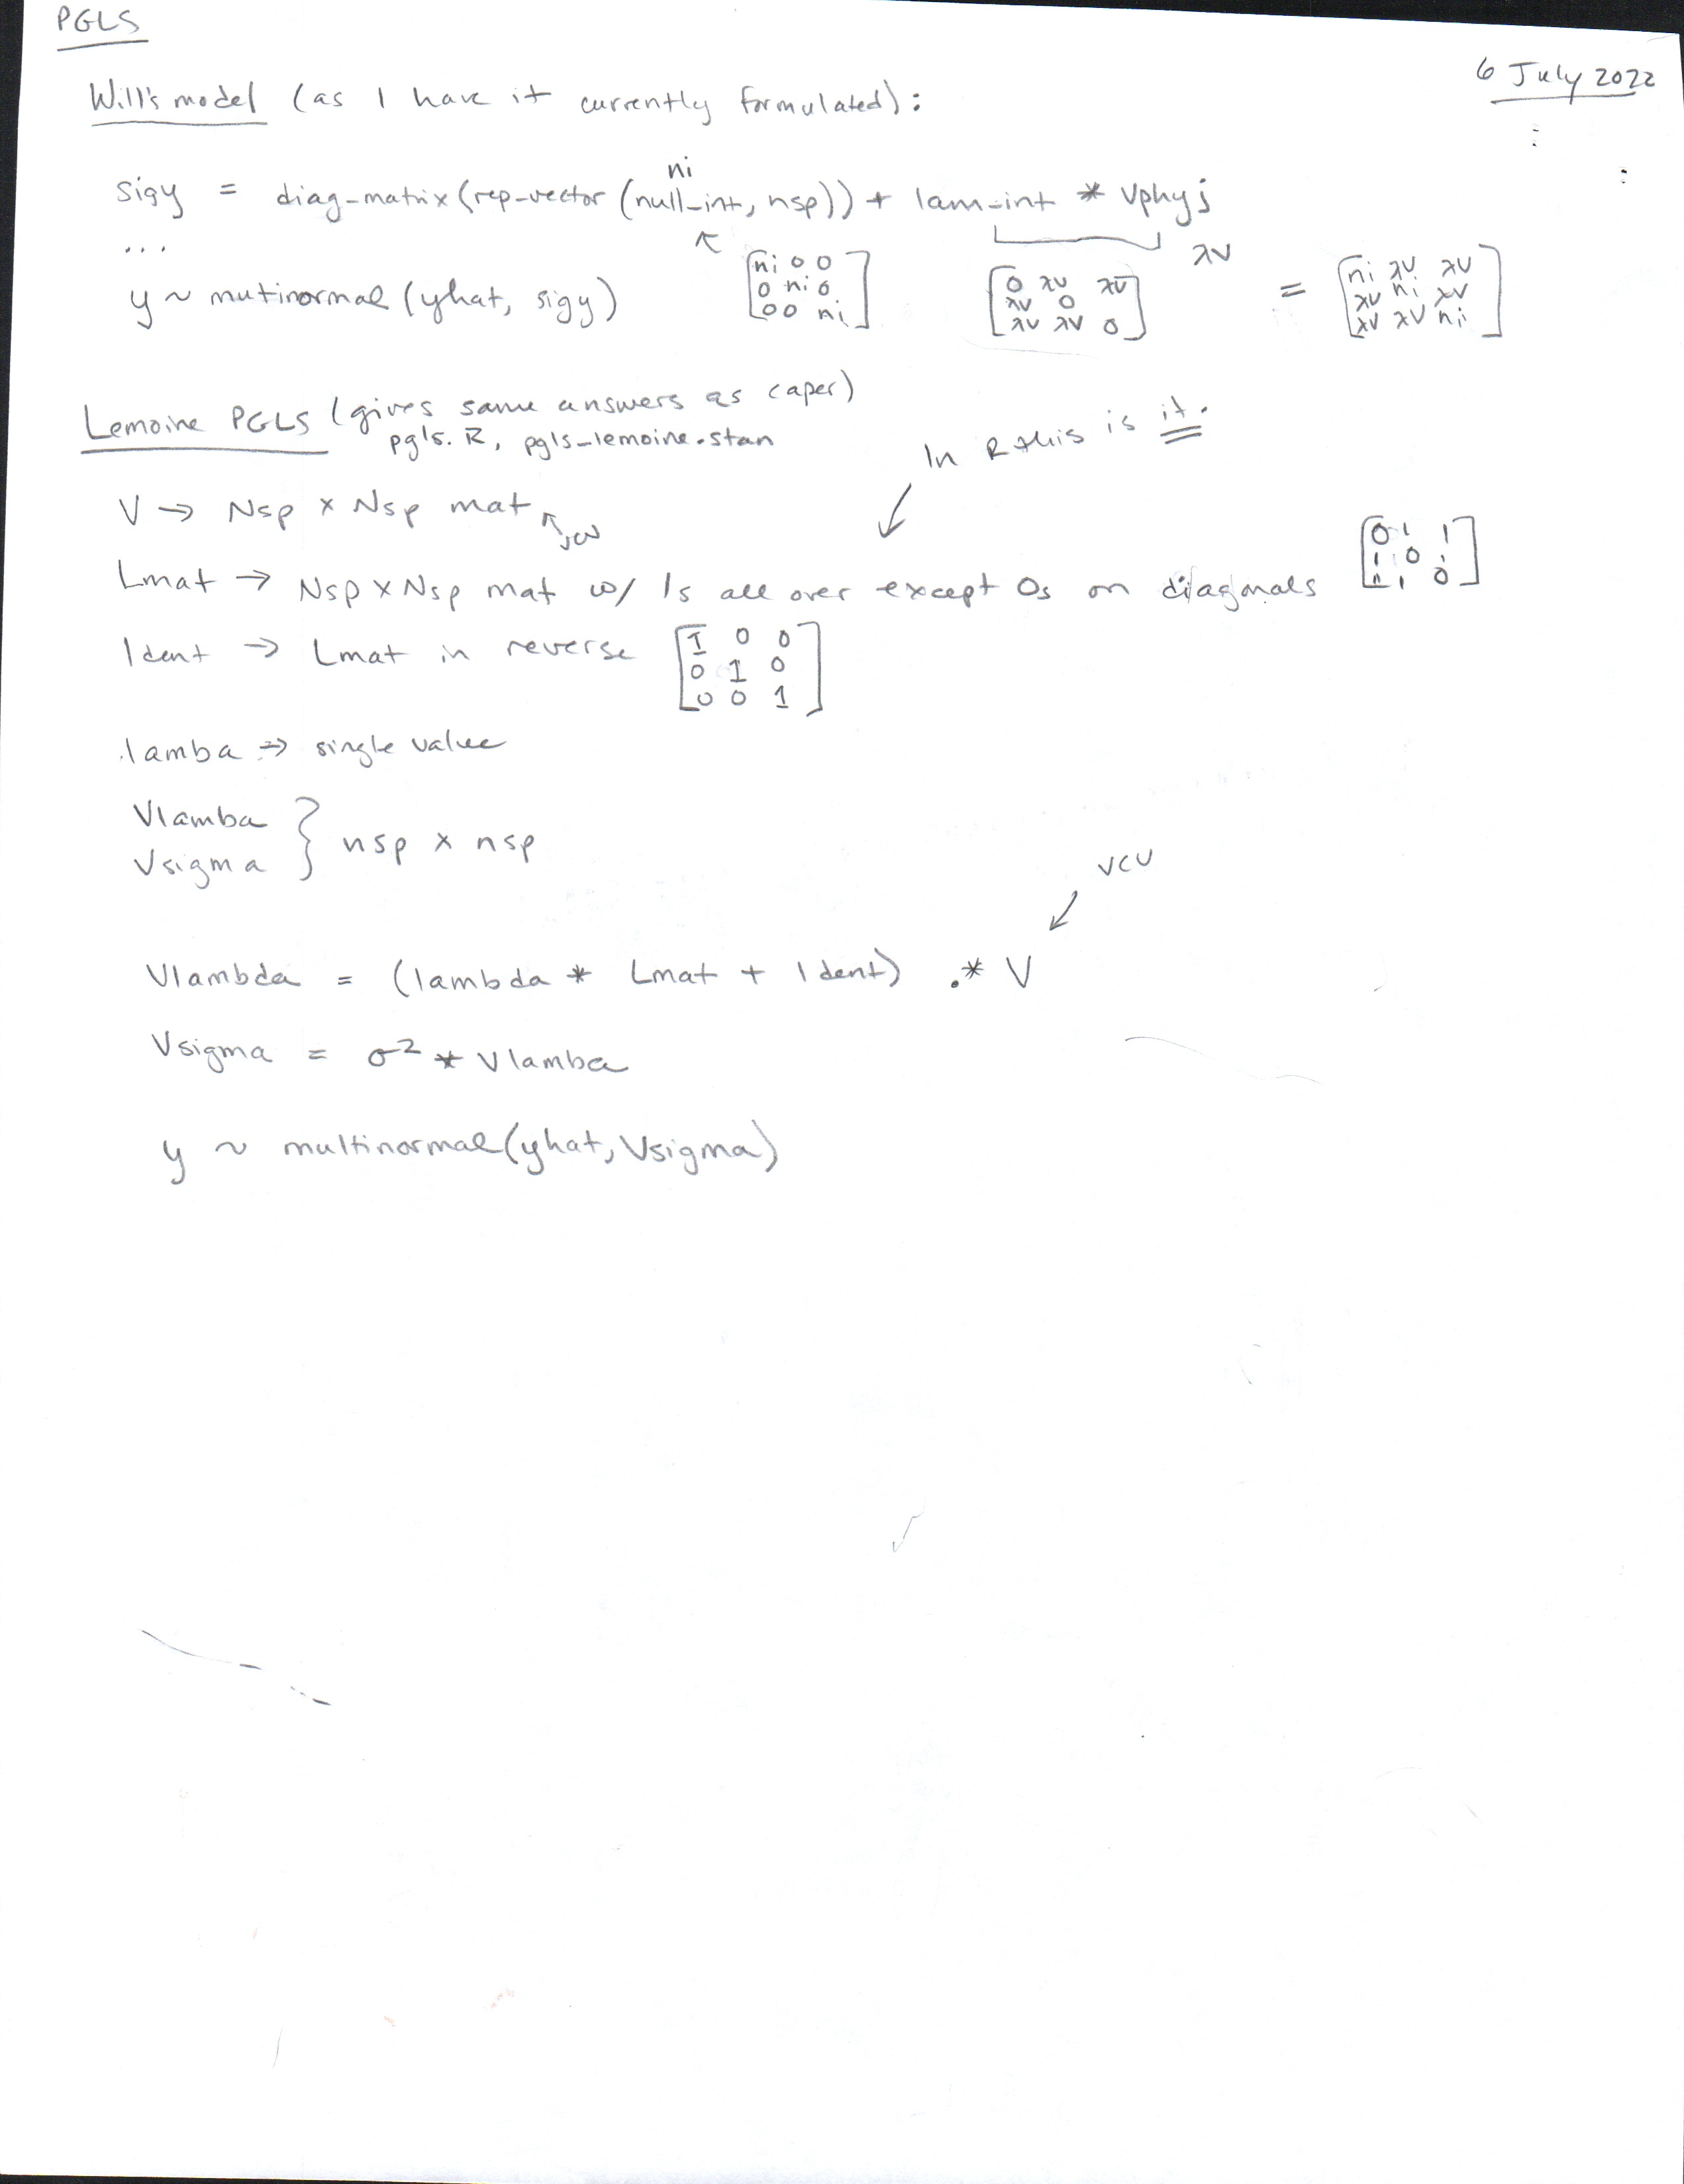 PGLS
6 July 2022
Will's model (as I have it currently formulated):
ni
sigy = diag-matrix (rep-vector (null_int, nsp)) + lam-int * Vphy;
...
λV
[ni 0 0
0 ni 0
0 0 ni]
[0 λV λV
λV 0
λV λV 0]
= [ni λV λV
λV ni λV
λV λV ni]
y ~ mutinormal (yhat, sigy)
Lemoine PGLS (gives same answers as caper)
pgls.R, pgls-lemoine.stan
In R this is it.
V → Nsp x Nsp mat
Lmat → Nsp x Nsp mat w/ 1s all over except 0s on diagonals
[0 1 1
1 0 1
1 1 0]
Ident → Lmat in reverse
[1 0 0
0 1 0
0 0 1]
lamba → single value
Vlamba
Vsigma } nsp x nsp
VCV
Vlambda = (lambda * Lmat + Ident) .* V
Vsigma = σ² * Vlamba
y ~ multinormal (yhat, Vsigma)